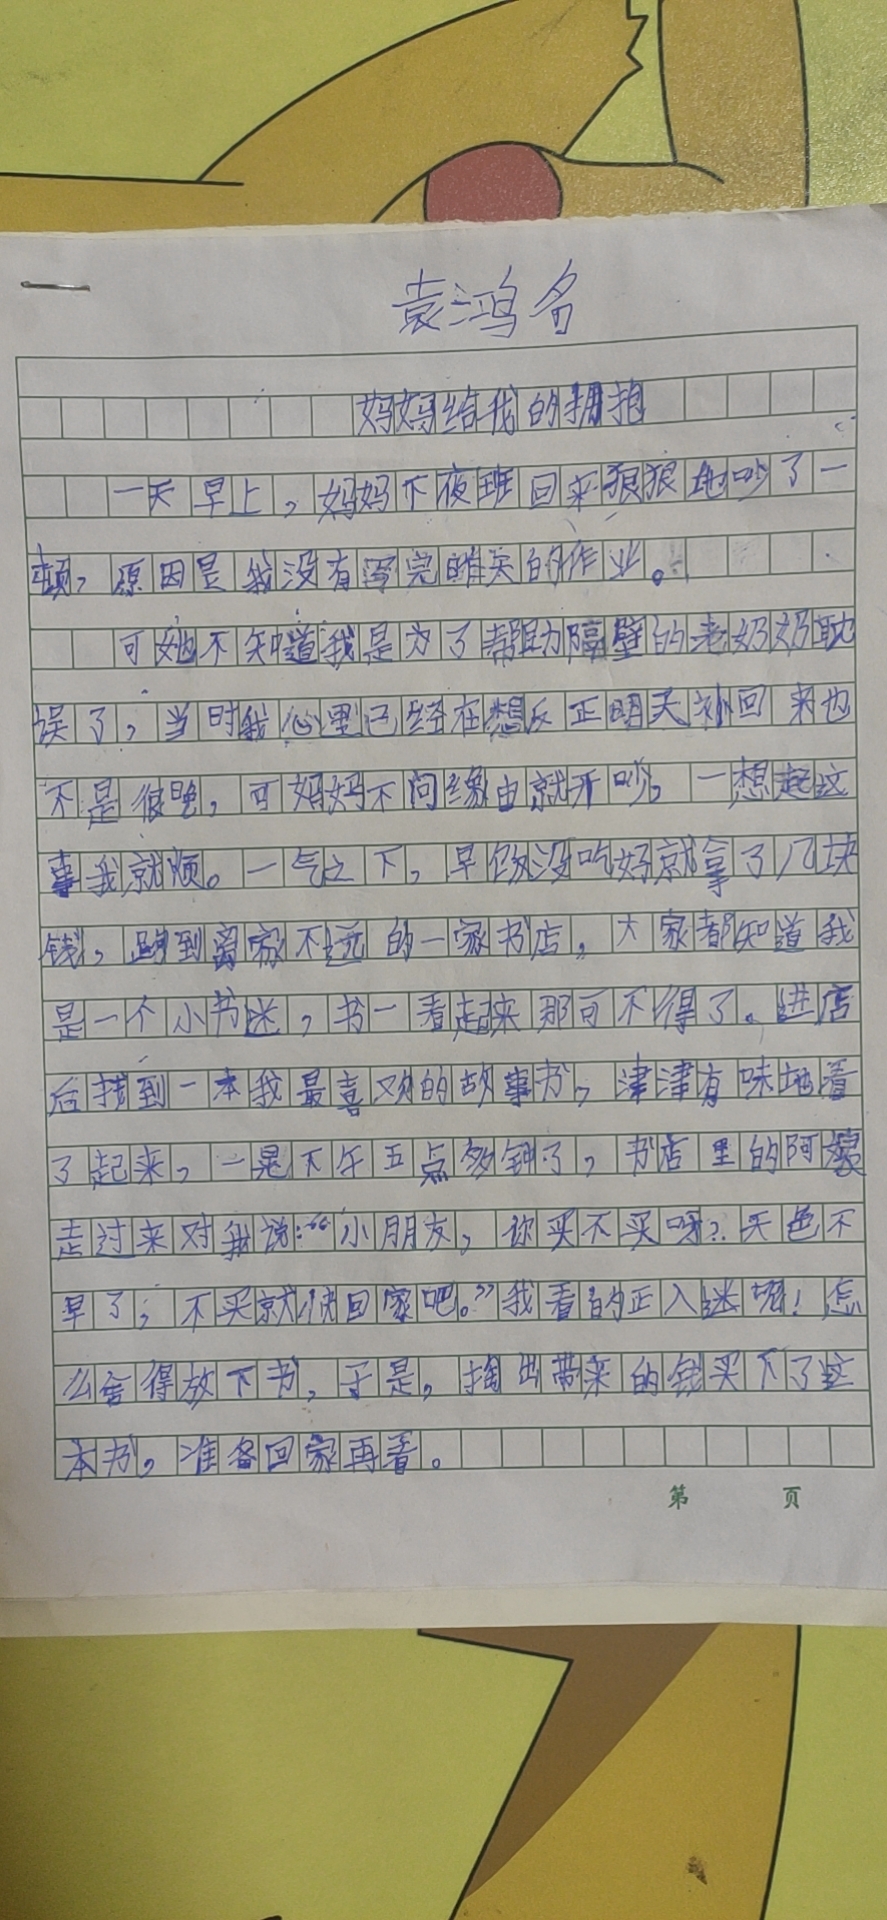 袁鸿名
妈妈给我的拥抱
一天早上，妈妈下夜班回来狠狠地吵了一
顿，原因是我没有写完昨天的作业。
可她不知道我是为了帮助隔壁的老奶奶耽
误了，当时我心里已经在想反正明天补回来也
不是很晚，可妈妈不问缘由就开吵。一想起这
事我就烦。一气之下，早饭没吃好就拿了几块
钱，跑到离家不远的一家书店。大家都知道我
是一个小书迷，书一看起来那可不得了。进店
后找到一本我最喜欢的故事书，津津有味地看
了起来，一晃下午五点多钟了，书店里的阿姨
走过来对我说：“小朋友，你买不买呀？天色不
早了，不买就快回家吧。”我看的正入迷呢！怎
么舍得放下书，于是，掏出带来的钱买下了这
本书，准备回家再看。
第 页